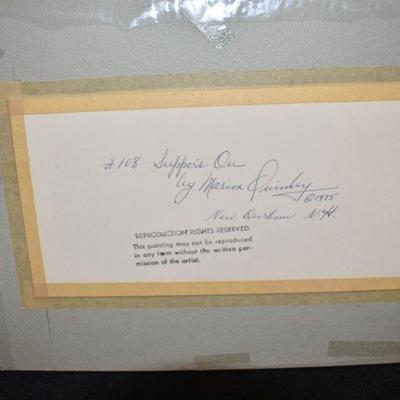 #108 Supper's On
by Marion Quimby
©1975
New Durham N.H.
REPRODUCTION RIGHTS RESERVED
This painting may not be reproduced
in any form without the written per-
mission of the artist.